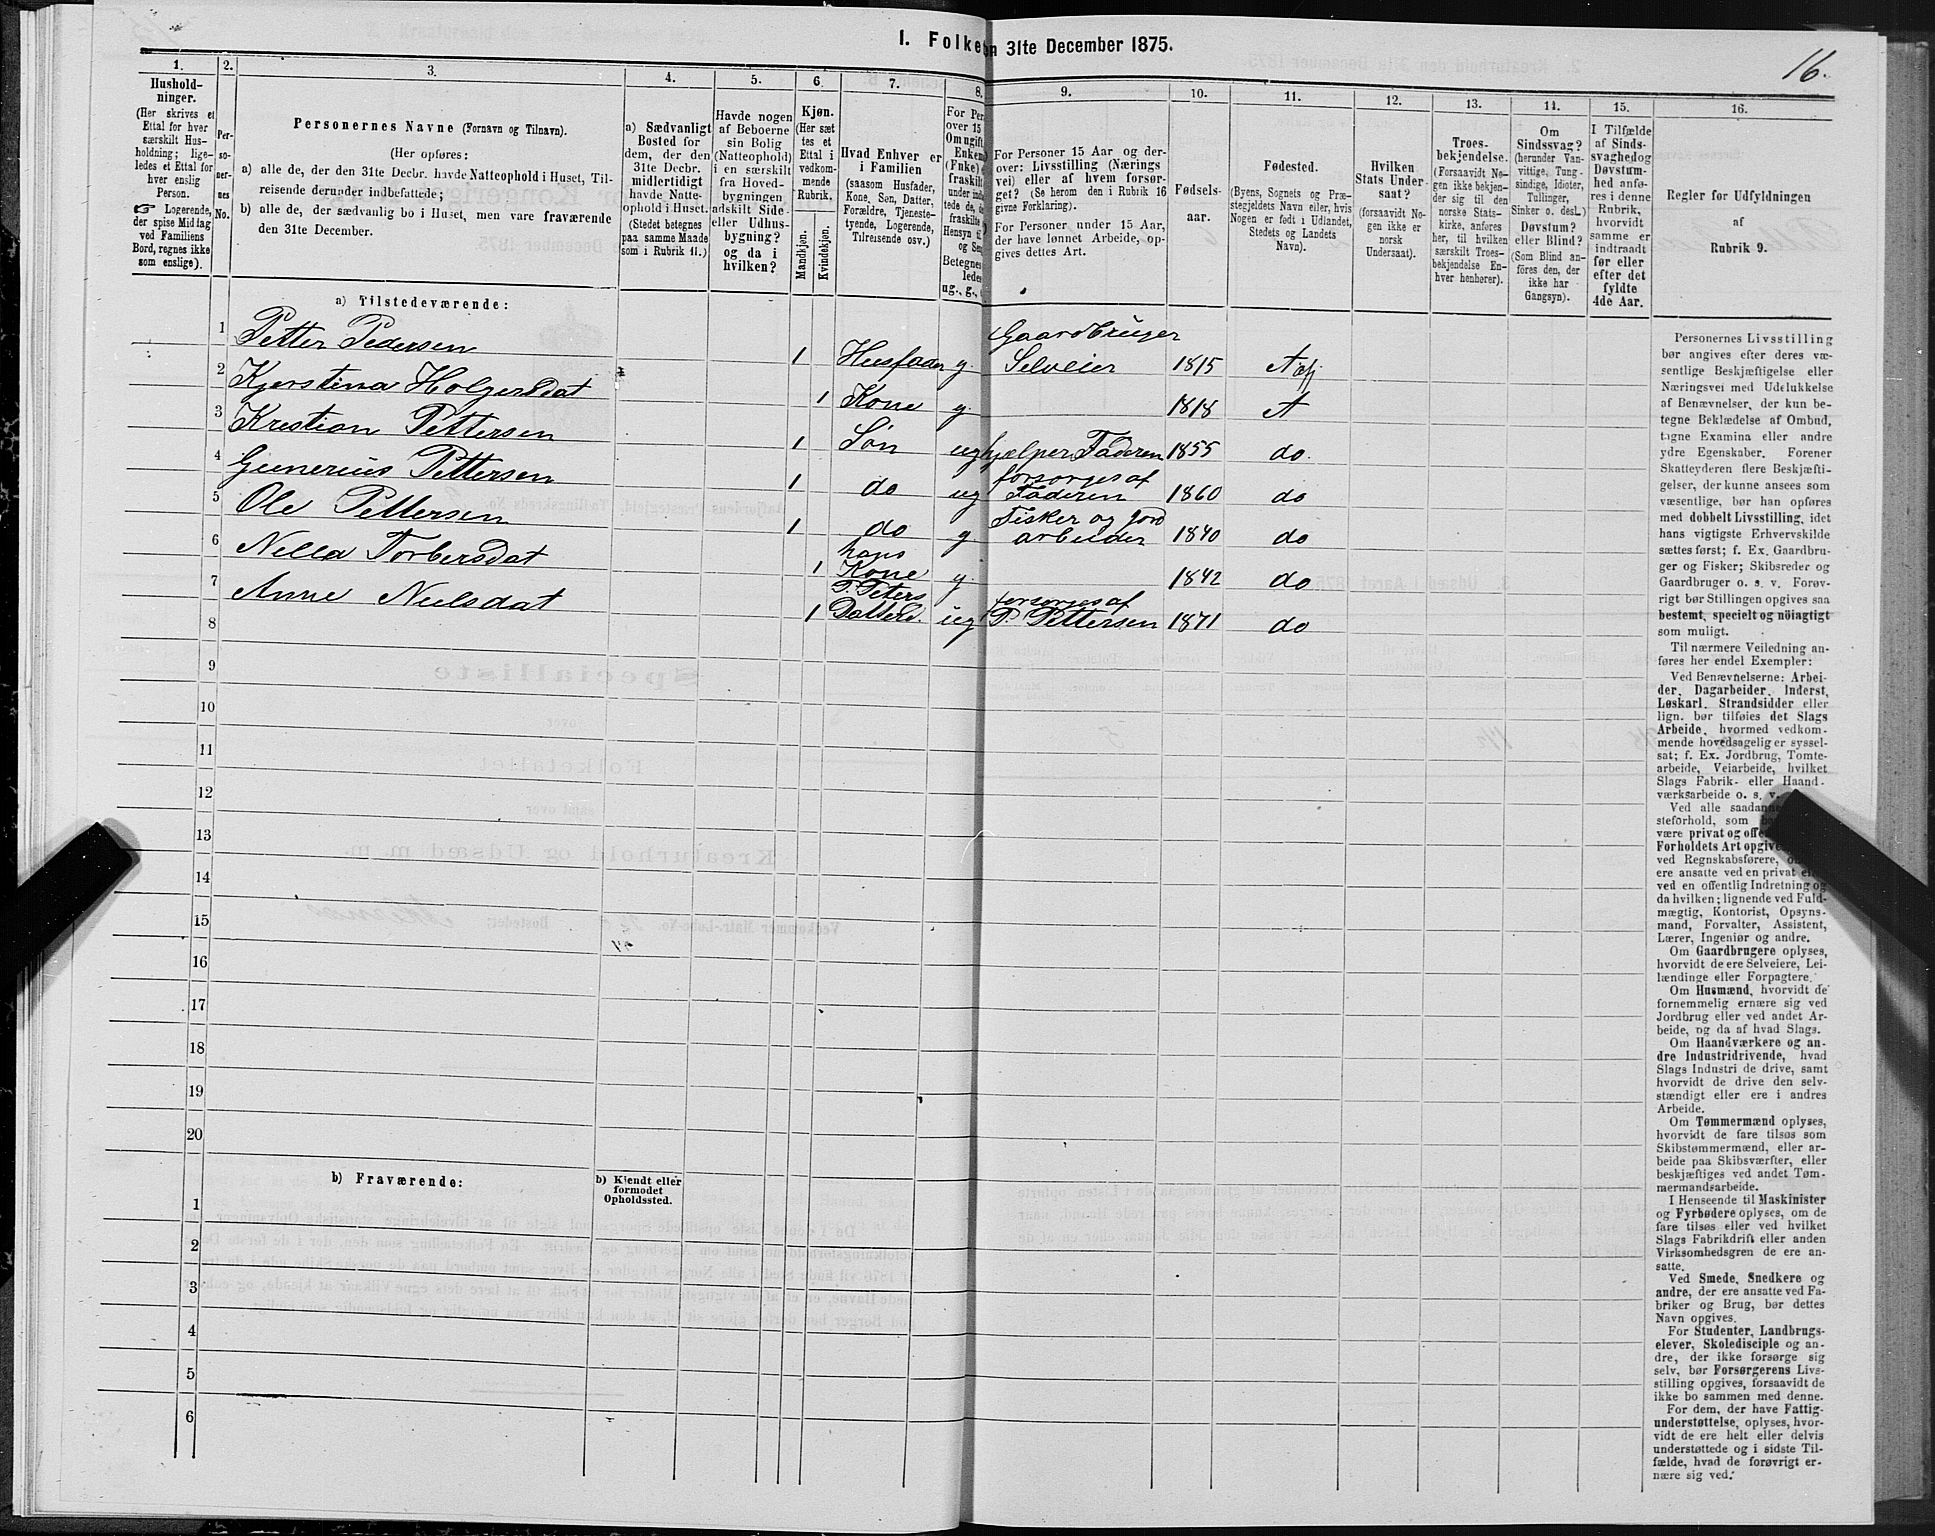 16.
I. Folketæ n 31te December 1875.
1. 2. 3. 4. 5. 6. 7. 8. 9. 10. 11. 12. 13. 14. 15. 16.
Hushold-
ninger.
(Her skrives et
Ettal for hver
særskilt Hus-
holdning; lige-
ledes et Ettal for
hver enslig
Person.
☞ Logerende,
der spise Middag
ved Familiens
Bord, regnes ikke
som enslige).
Per-
so-
ner-
nes
No.
Personernes Navne (Fornavn og Tilnavn).
(Her opføres:
a) alle de, der den 31te Decbr. havde Natteophold i Huset, Til-
reisende derunder indbefattede;
b) alle de, der sædvanlig bo i Huset, men vare fraværende
den 31te December.
a) Sædvanligt
Bosted for
dem, der den
31te Decbr.
midlertidigt
havde Natte-
ophold i Huset.
(Stedet betegnes
paa samme Maade
som i Rubrik 11.)
Havde nogen
af Beboerne
sin Bolig
(Natteophold)
i en særskilt
fra Hoved-
bygningen
adskilt Side-
eller Udhus-
bygning?
og da i
hvilken?
Kjøn.
(Her sæt
tes et
Ettal i
vedkom-
mende
Rubrik.
Mandkjøn.
Kvindekjøn.
Hvad Enhver er
i Familien
(saasom Husfader,
Kone, Søn, Datter,
Forældre, Tjeneste-
tyende, Logerende,
Tilreisende osv.)
For Per
over 15
Om ugift
Enkem
(Fnke)
fraskilt
under ind
tede de,
fraskilte
Hensyn ti
og Sen
Betegnes
ledes
ug., g.,
For Personer 15 Aar og der-
over: Livsstilling (Nærings
vei) eller af hvem forsør-
get? (Se herom den i Rubrik 16
givne Forklaring).
For Personer under 15 Aar,
der have lønnet Arbeide, op-
gives dettes Art.
Fødsels-
aar.
Fødested.
(Byens, Sognets og Præ-
stegjeldets Navn eller, hvis
Nogen er født i Udlandet,
Stedets og Landets
Navn).
Hvilken
Stats Under-
saat?
(forsaavidt No-
gen ikke er
norsk
Undersaat).
Troes-
bekjendelse.
(Forsaavidt No-
gen ikke bekjen-
der sig til den
norske Stats-
kirke, anføres
her, til hvilken
særskilt Troes-
bekjendelse En-
hver henhører).
Om
Sindssvag?
(herunder Van-
vittige, Tung-
sindige, Idioter,
Tullinger,
Sinker o. desl.)
Døvstum?
eller Blind?
(Som Blind an-
føres den, der
ikke har
Gangsyn).
I Tilfælde
af Sinds-
svaghed og
Døvstum-
hed anfø-
res i denne
Rubrik,
hvorvidt
samme er
indtraadt
før eller
efter det
fyldte
4de Aar.
Regler før Udfyldningen
af
Rubrik 9.
a) Tilstedeværende:
1 Petter Pedersen 1 Husfader g. Gaardbruger Selveier 1815 Aafj
2 Kjerstina Holgersdat 1 Kone g. 1818 A
3 Krestian Pettersen 1 Søn ug hjælper Faderen 1855 do.
4 Gunerius Pettersen 1 do ug forsorges af Faderen 1860 do
5 Ole Pettersen 1 do g Fisker og Jord arbeider 1840 do
6 Nella Torbersdat 1 hans Kone g. 1842 do
7 Anne Nielsdat 1 P. Peters Datterd. ug forsorges af P. Pettersen 1871 do
8
9
10
11
12
13
14
15
16
17
18
19
20
b) Fraværende:
b) Kjendt eller
formodet
Opholdssted.
1
2
3
4
5
6
Personernes Livsstilling
bør angives efter deres væ-
sentlige Beskjæftigelse eller
Næringsvei med Udelukkelse
af Benævnelser, der kun be-
tegne Beklædelse af Ombud,
tagne Examina eller andre
ydre Egenskaber. Forener
Skatteyderen flere Beskjæfti-
gelser, der kunne ansees som
væsentlige, bør han opføres
med dobbelt Livsstilling, idet
hans vigtigste Erhvervskilde
sættes først; f. Ex. Gaardbru-
ger og Fisker; Skibsreder og
Gaardbruger o. s. v. Forøv-
rigt bør Stillingen opgives saa
bestemt, specielt og nöiagtigt
som muligt.
Til nærmere Veiledning an-
føres her endel Exempler:
Ved Benævnelserne: Arbei-
der, Dagarbeider, Inderst,
Løskarl, Strandsidder eller
lign. bør tilføies det Slags
Arbeide, hvormed vedkom-
mende hovedsagelig er syssel-
sat; f. Ex. Jordbrug, Tomte-
arbeide, Veiarbeide, hvilket
Slags Fabrik- eller Haand-
værksarbeide o. s. v.
Ved alle saadanne
steforhold, som
være privat og off
Forholdets Art opgive
ved Regnskabsførere,
ere ansatte ved en privat
ved en offentlig Indretning og
da hvilken; lignende ved Fuld-
mægtig, Kontorist, Opsyns-
mand, Forvalter, Assistent,
Lærer, Ingeniør og andre.
Om Gaardbrugere oplyses,
hvorvidt de ere Selveiere, Lei-
lændinge eller Forpagtere.
Om Husmænd, hvorvidt de
fornemmelig ernære sig ved
Jordbrug eller ved andet Ar-
beide, og da af hvad Slags.
Om Haandværkere og an-
dre Industridrivende, hvad
Slags Industri de drive, samt
hvorvidt de drive den selv-
stændigt eller ere i andres
Arbeide.
Om Tømmermænd oplyses,
hvorvidt de fare tilsøs som
Skibstømmermænd, eller ar-
beide paa Skibsværfter, eller
beskjæftiges ved andet Tøm-
mermandsarbeide.
I Henseende til Maskinister
og Fyrbødere oplyses, om de
fare tilsøs eller ved hvilket
Slags Fabrikdrift eller anden
Virksomhedsgren de ere an-
satte.
Ved Smede, Snedkere og
andre, der ere ansatte ved Fa-
briker og Brug, bør dettes
Navn opgives.
For Studenter, Landbrugs-
elever, Skoledisciple og an-
dre, der ikke forsørge sig
selv, bør Forsørgerens Livs-
stilling opgives, forsaavidt de
ikke bo sammen med denne.
For dem, der have Fattig-
understøttelse, oplyses, hvor-
vidt de ere helt eller delvis
understøttede og i sidste Til-
fælde, hvad de forøvrigt er-
nære sig ved.